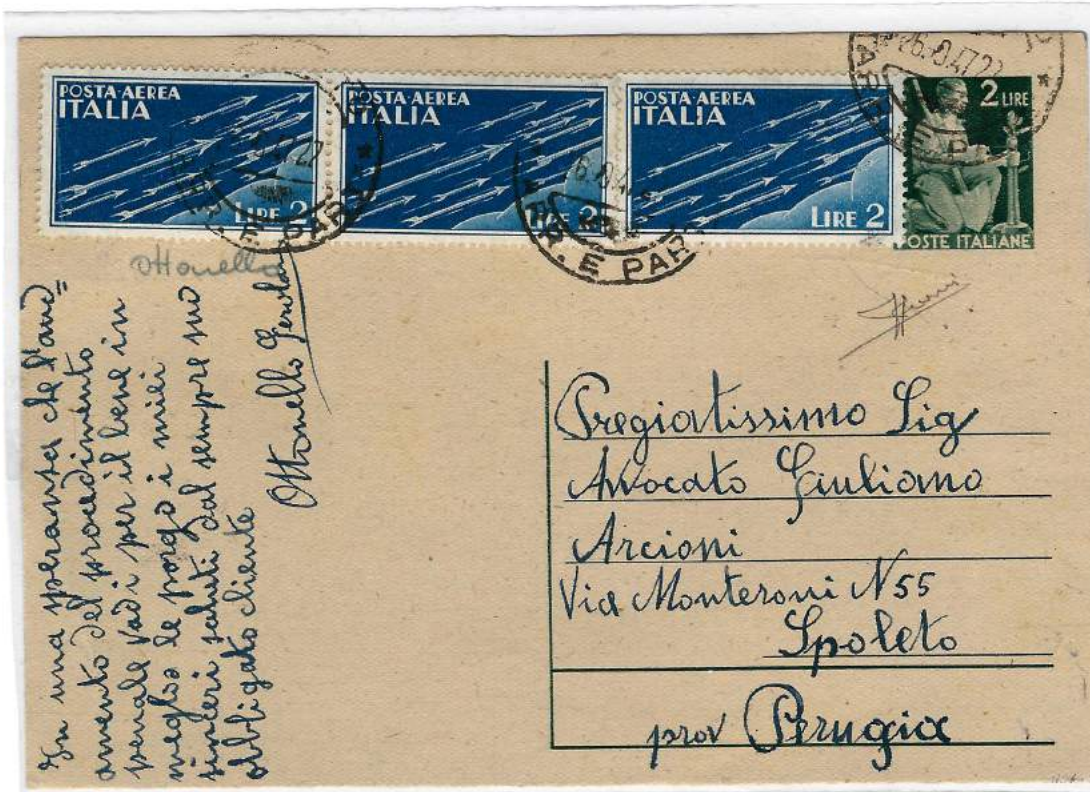 POSTA-AEREA
ITALIA
LIRE 2
POSTA-AEREA
ITALIA
LIRE 2
POSTA-AEREA
ITALIA
LIRE 2
2 LIRE
POSTE ITALIANE
AR. E PAR
Ottonello
In una speranza che l'and=
amento del procedimento
penale vadi per il bene in
meglio le porgo i miei
sinceri saluti dal sempre suo
obbligato cliente
Ottonello
Pregiatissimo Sig
Avvocato Giuliano
Arcioni
Via Monteroni N 55
Spoleto
prov Perugia